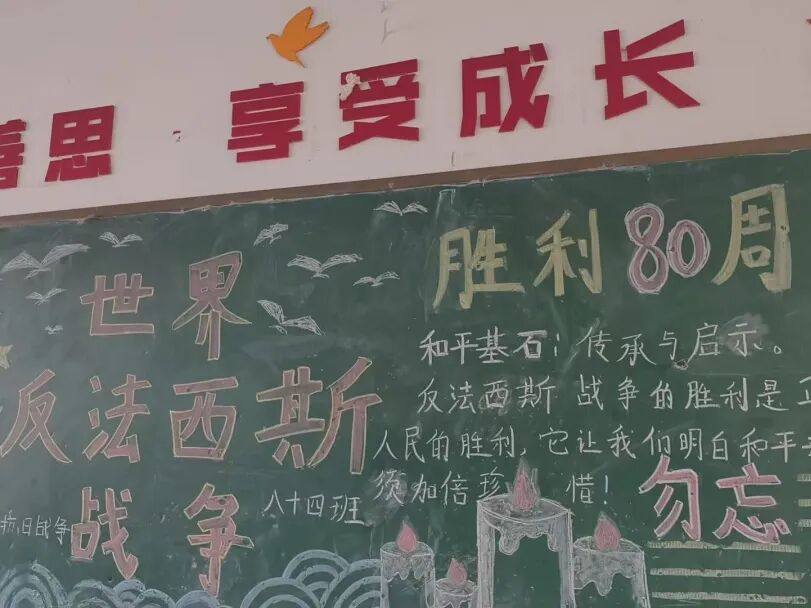 善思 享受成长
世界
反法西斯
战争
胜利80周
和平基石：传承与启示。
反法西斯 战争的胜利是正
人民的胜利，它让我们明白和平
须加倍珍 惜！
八十四班
抗日战争
勿忘